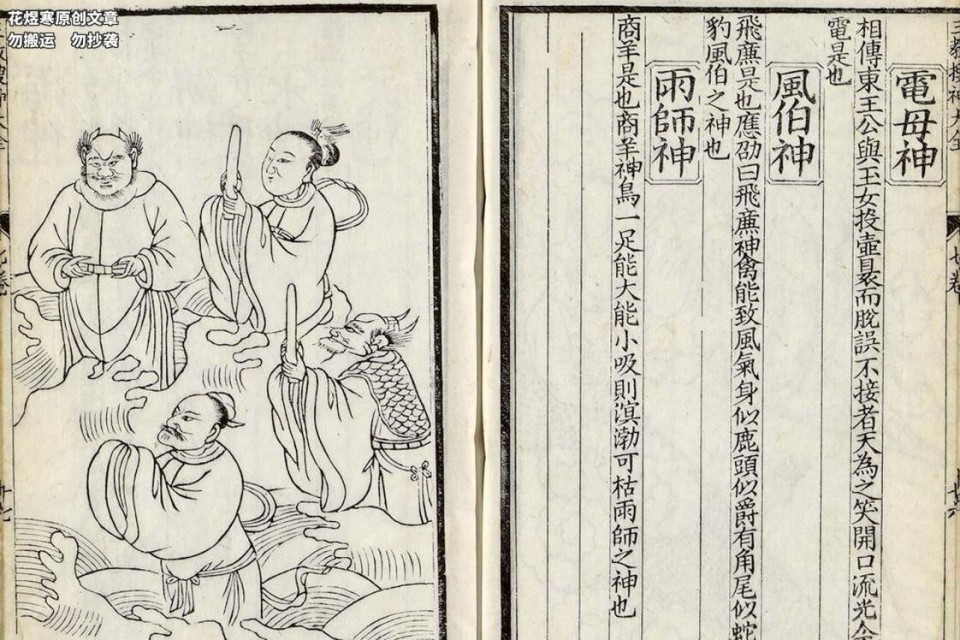 花煜寒原创文章
勿搬运 勿抄袭
電母神
相傳東王公與玉女投壺裊而脫誤不接者天為之笑開口流光今
電是也
風伯神
飛廉是也應劭曰飛廉神禽能致風氣身似鹿頭似爵有角尾似蛇
豹風伯之神也
雨師神
商羊是也商羊神鳥一足能大能小吸則溟渤可枯雨師之神也
七卷